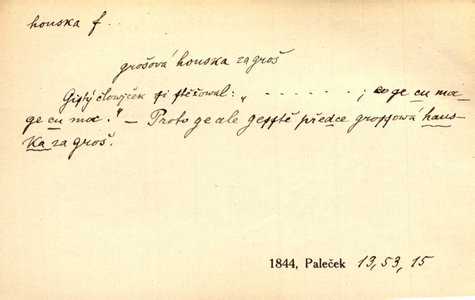 houska f.
grošová houska za groš
Gistý člowjček si stěžowal: „ - - - - - - - ; co ge cu mo-
ge cu moc." — Proto ge ale gesstě předce grossowá haus-
ka za groš.
1844, Paleček 13, 53, 15